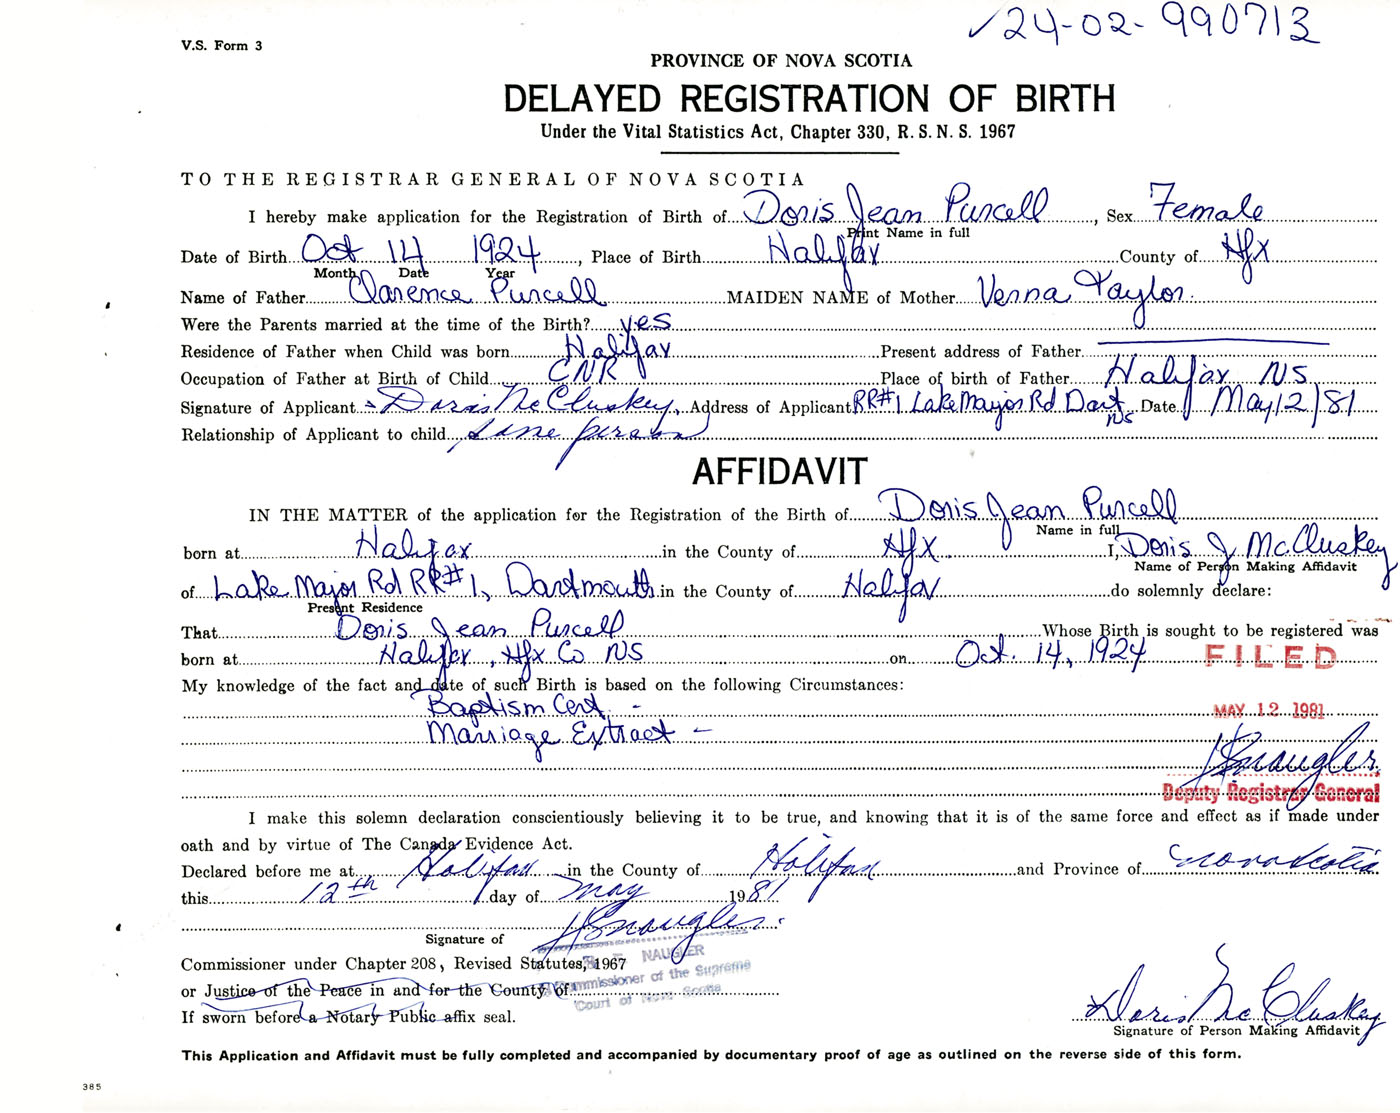 ✓24-02-990713
V.S. Form 3
PROVINCE OF NOVA SCOTIA
DELAYED REGISTRATION OF BIRTH
Under the Vital Statistics Act, Chapter 330, R.S.N.S. 1967
TO THE REGISTRAR GENERAL OF NOVA SCOTIA
I hereby make application for the Registration of Birth of Doris Jean Purcell, Sex Female
Print Name in full
Date of Birth Oct 14 1924, Place of Birth Halifax County of Hfx
Month Date Year
Name of Father Clarence Purcell MAIDEN NAME of Mother Verna Taylor
Were the Parents married at the time of the Birth? yes
Residence of Father when Child was born Halifax Present address of Father
Occupation of Father at Birth of Child CNR Place of birth of Father Halifax NS
Signature of Applicant Doris McCluskey, Address of Applicant RR#1 Lake Major Rd Dart NS Date May 12/81
Relationship of Applicant to child same person
AFFIDAVIT
IN THE MATTER of the application for the Registration of the Birth of Doris Jean Purcell
Name in full
born at Halifax in the County of Hfx I, Doris J McCluskey
Name of Person Making Affidavit
of Lake Major Rd RR#1, Dartmouth in the County of Halifax do solemnly declare:
Present Residence
That Doris Jean Purcell Whose Birth is sought to be registered was
born at Halifax, Hfx Co NS on Oct. 14, 1924
FILED
My knowledge of the fact and date of such Birth is based on the following Circumstances:
Baptism Cert -
MAY 12 1981
Marriage Extract -
Deputy Registrar General
I make this solemn declaration conscientiously believing it to be true, and knowing that it is of the same force and effect as if made under
oath and by virtue of The Canada Evidence Act.
Declared before me at Halifax in the County of Halifax and Province of Nova Scotia
this 12th day of May 1981
Signature of
NAUGLER
Commissioner under Chapter 208, Revised Statutes, 1967
Commissioner of the Supreme
or Justice of the Peace in and for the County of
Court of Nova Scotia
If sworn before a Notary Public affix seal.
Doris McCluskey
Signature of Person Making Affidavit
This Application and Affidavit must be fully completed and accompanied by documentary proof of age as outlined on the reverse side of this form.
385